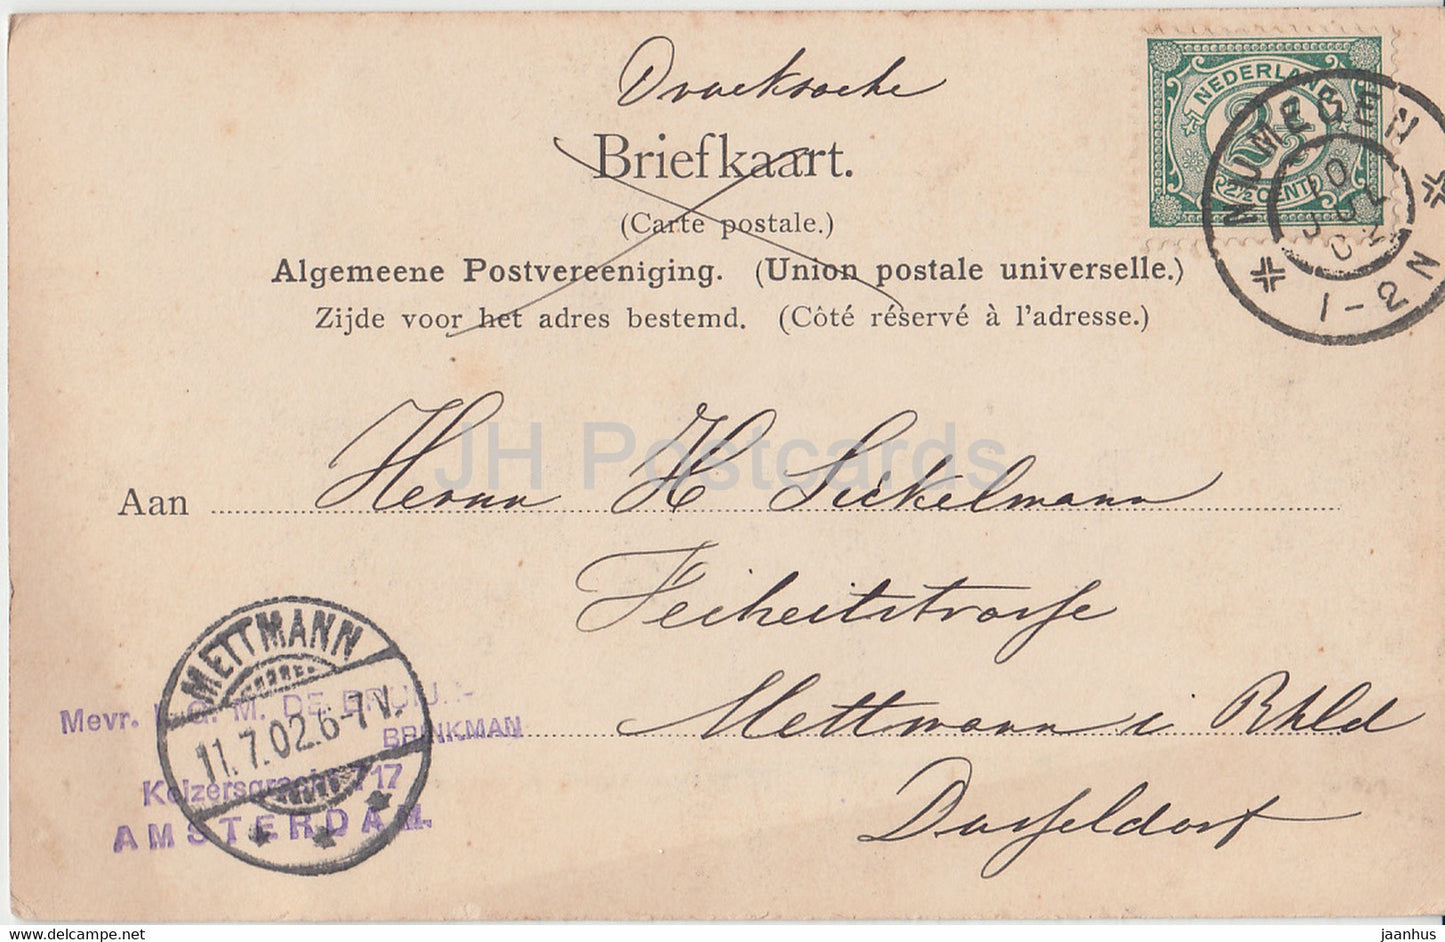 Drucksache
Briefkaart.
(Carte postale.)
Algemeene Postvereeniging. (Union postale universelle.)
Zijde voor het adres bestemd. (Côté réservé à l'adresse.)
NEDERLAND
2½
2½ CENT
NIJMEGEN
10 JUL 02
1-2N
Aan Herrn H Sickelmann
Feiheitstrasse
Mettmann i Rhld
Dusseldorf
METTMANN
11.7.02.6-7V.
Mevr. G. M. DE
BRINKMAN
Keizersgracht 717
AMSTERDAM.
JH Postcards
www.delcampe.net
jaanhus